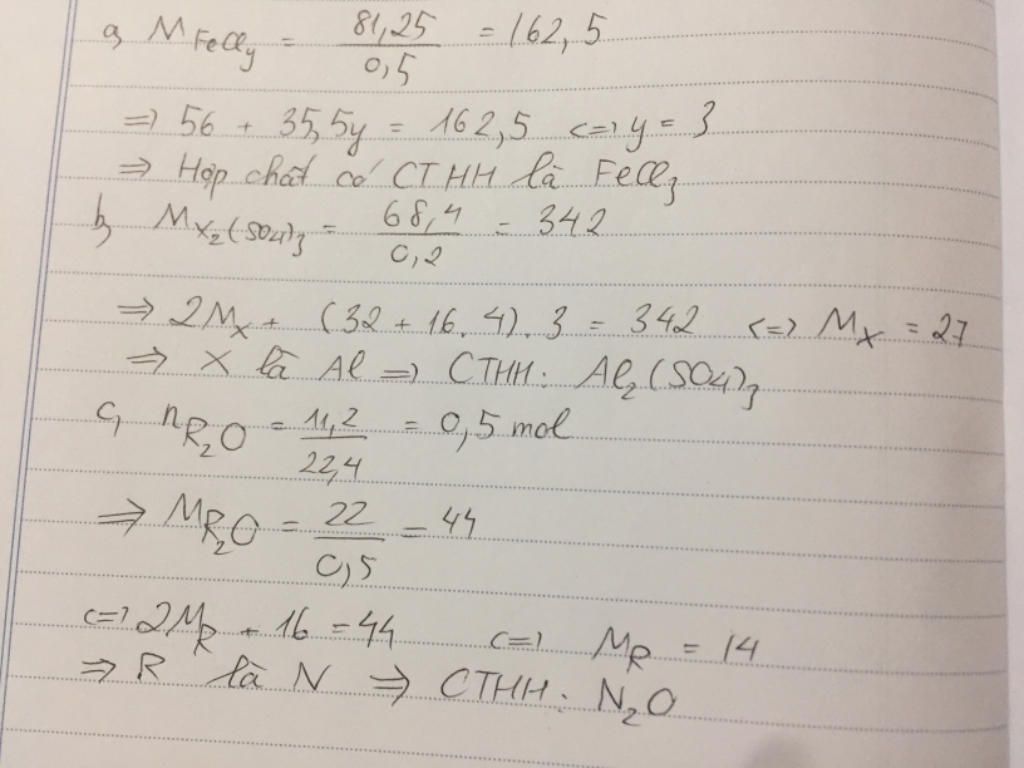 a, M FeCly = 81,25 / 0,5 = 162,5
=> 56 + 35,5y = 162,5 <=> y = 3
=> Hợp chất có CTHH là FeCl3
b, M X2(SO4)3 = 68,4 / 0,2 = 342
=> 2MX + (32 + 16.4).3 = 342 <=> MX = 27
=> X là Al => CTHH: Al2(SO4)3
c, nR2O = 11,2 / 22,4 = 0,5 mol
=> MR2O = 22 / 0,5 = 44
<=> 2MR + 16 = 44 <=> MR = 14
=> R là N => CTHH: N2O